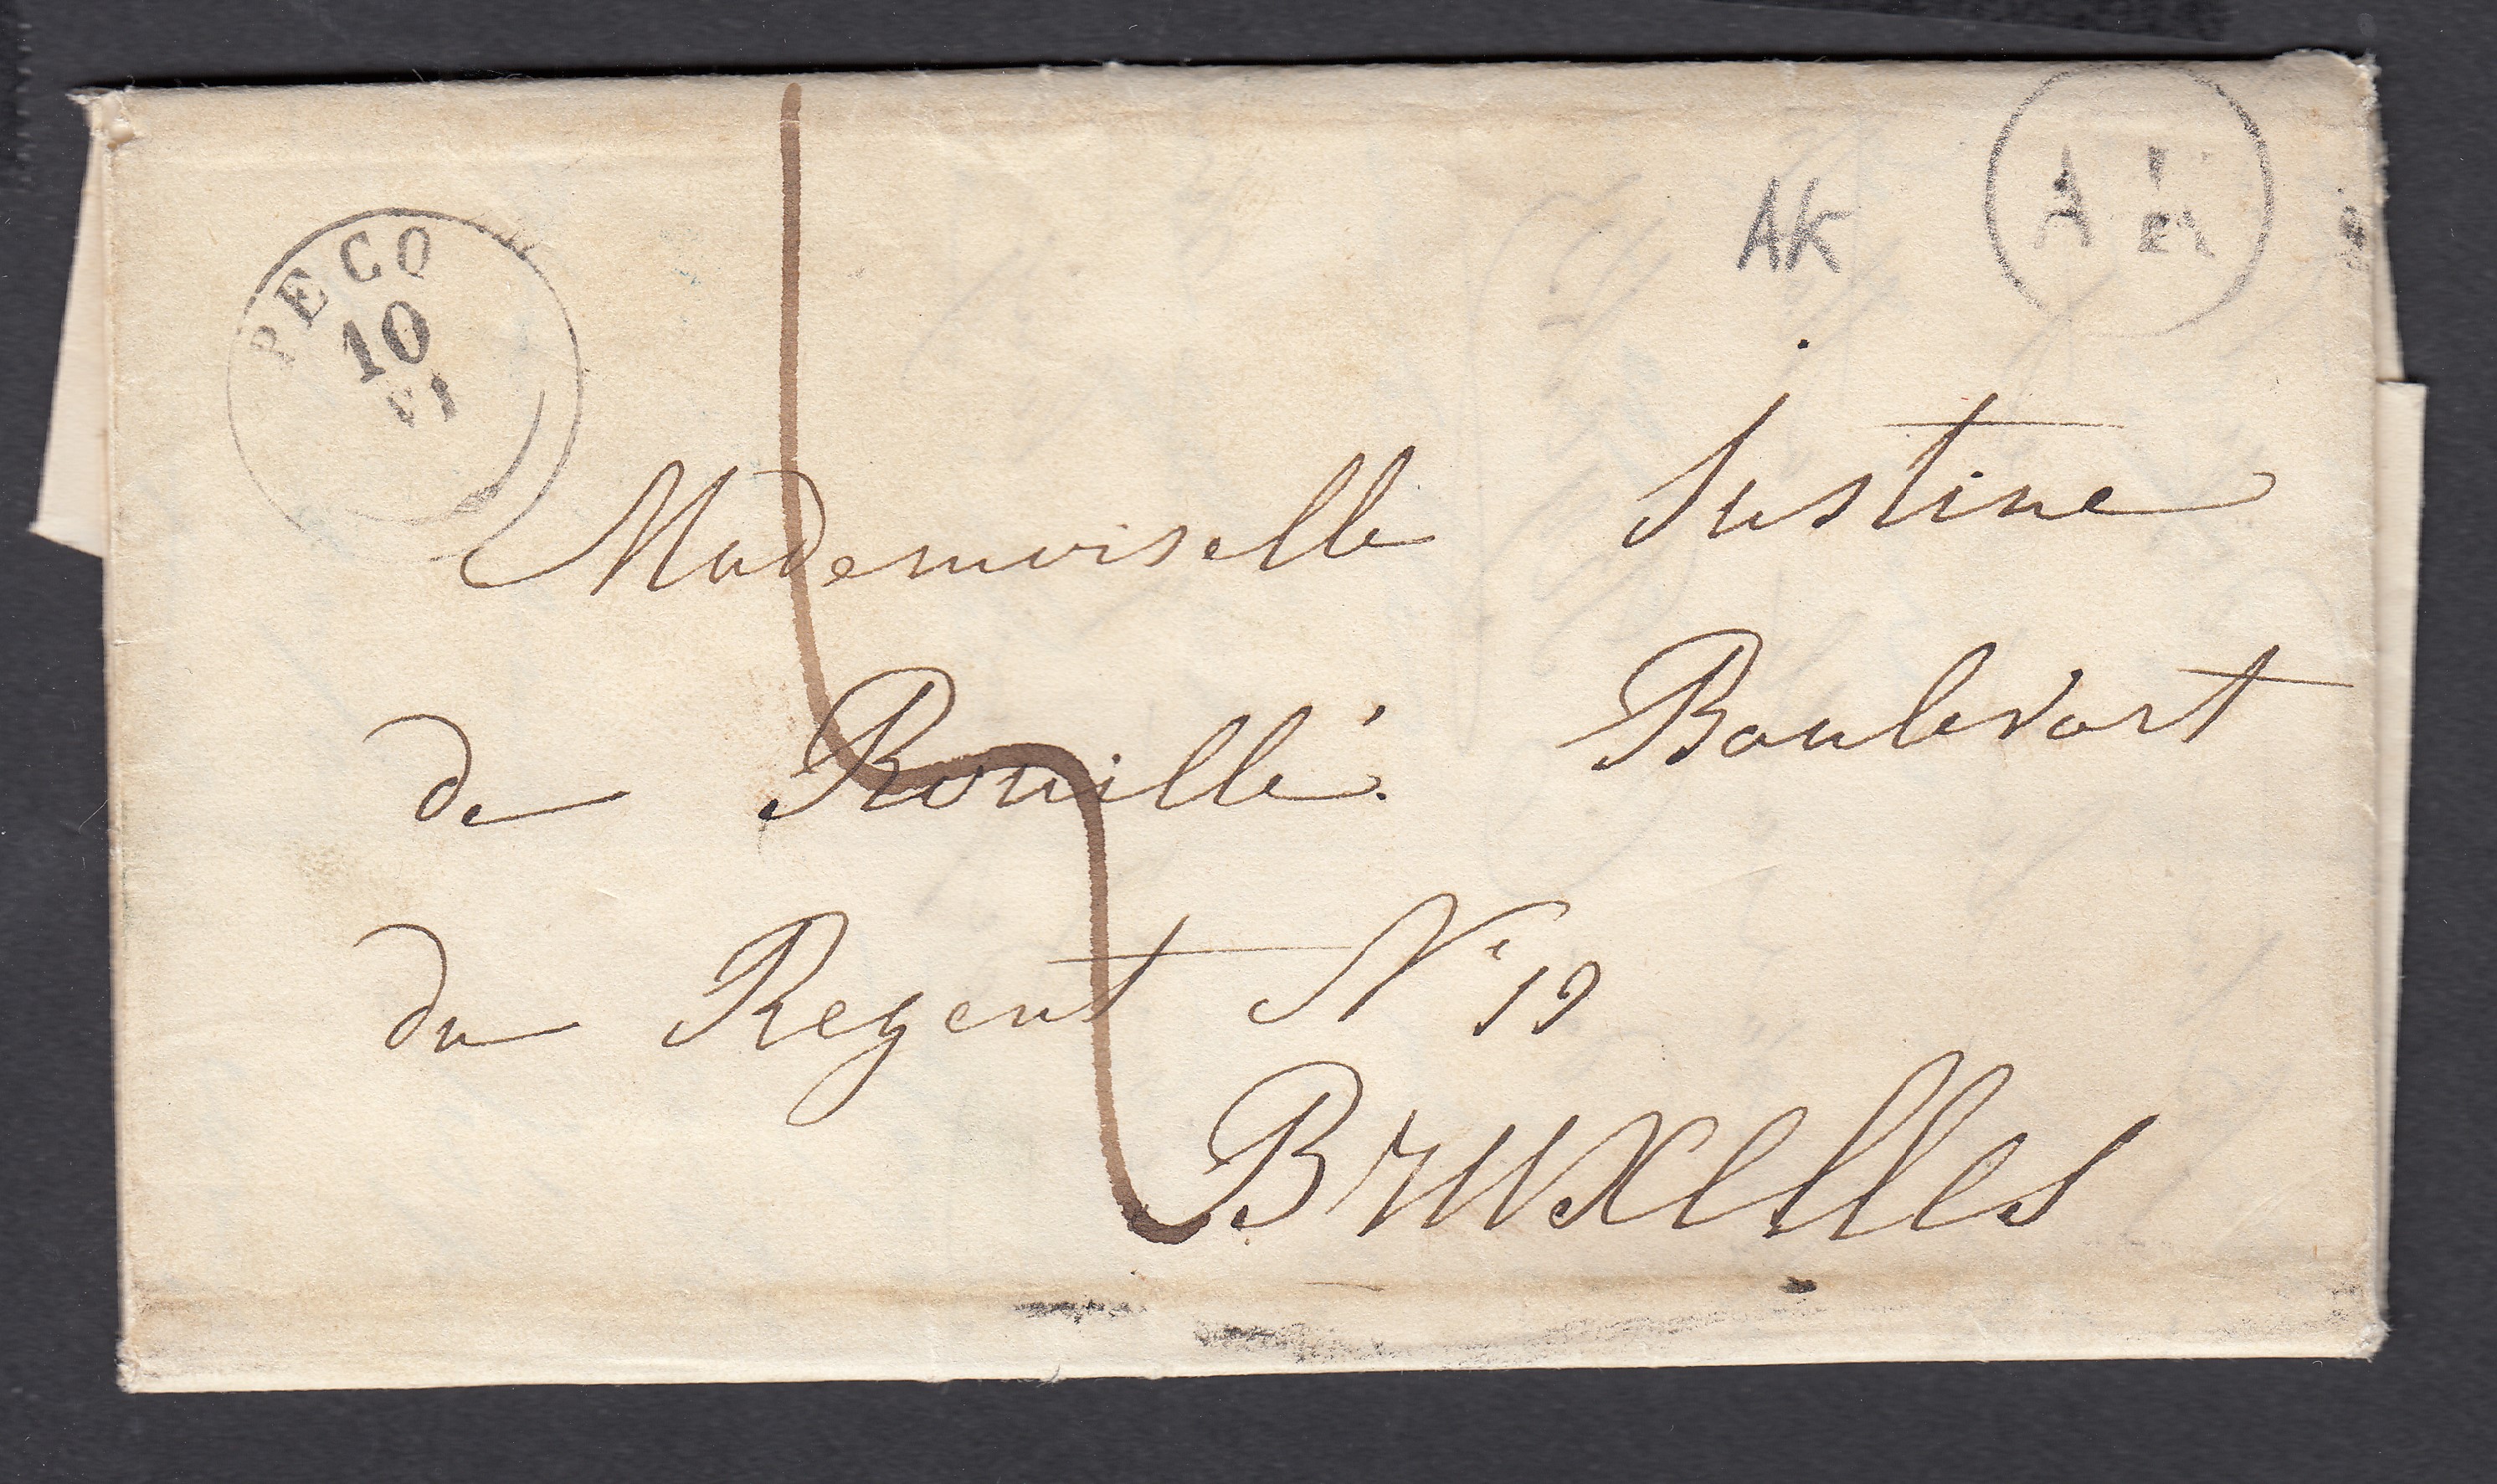 PECQ
10
VI
AK
AK
Mademoiselle Justine
de Rouillé. Boulevart
du Regent N° 19
Bruxelles